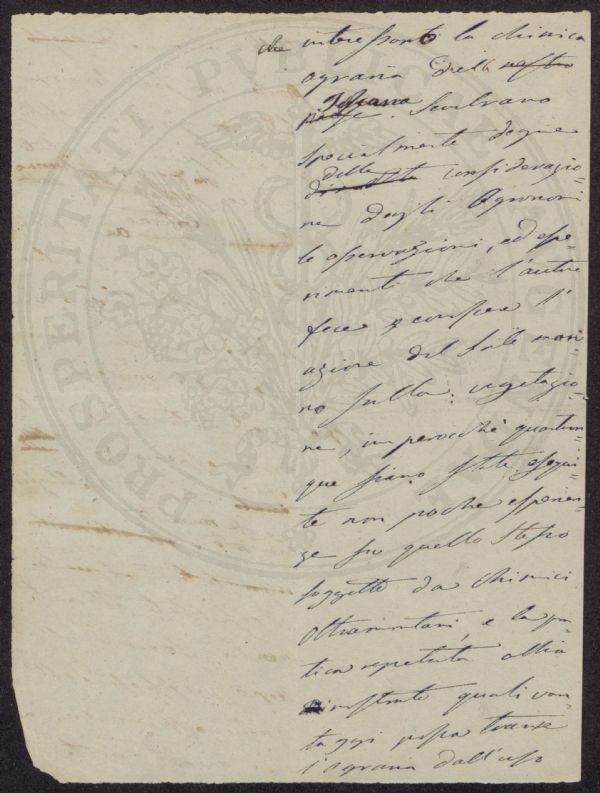 che interessano la chimica
agraria dell nostro
Toscana
paese. Sembrano
specialmente degne
della
considerazio=
ne degli Agronomi
le osservazioni, ed espe=
rimenti che l'autore
fece conoscere l'
azione del sale mari=
no sulla vegetazio=
ne, imperocchè quantun=
que siano state esegui=
te non poche esperien=
ze su quello stesso
soggetto da chimici
oltramontani, e la pra=
tica ripetuta abbia
mostrato quali van=
taggi possa trarre
l'agraria dall'uso
PROSPERITATI PUBLICAE